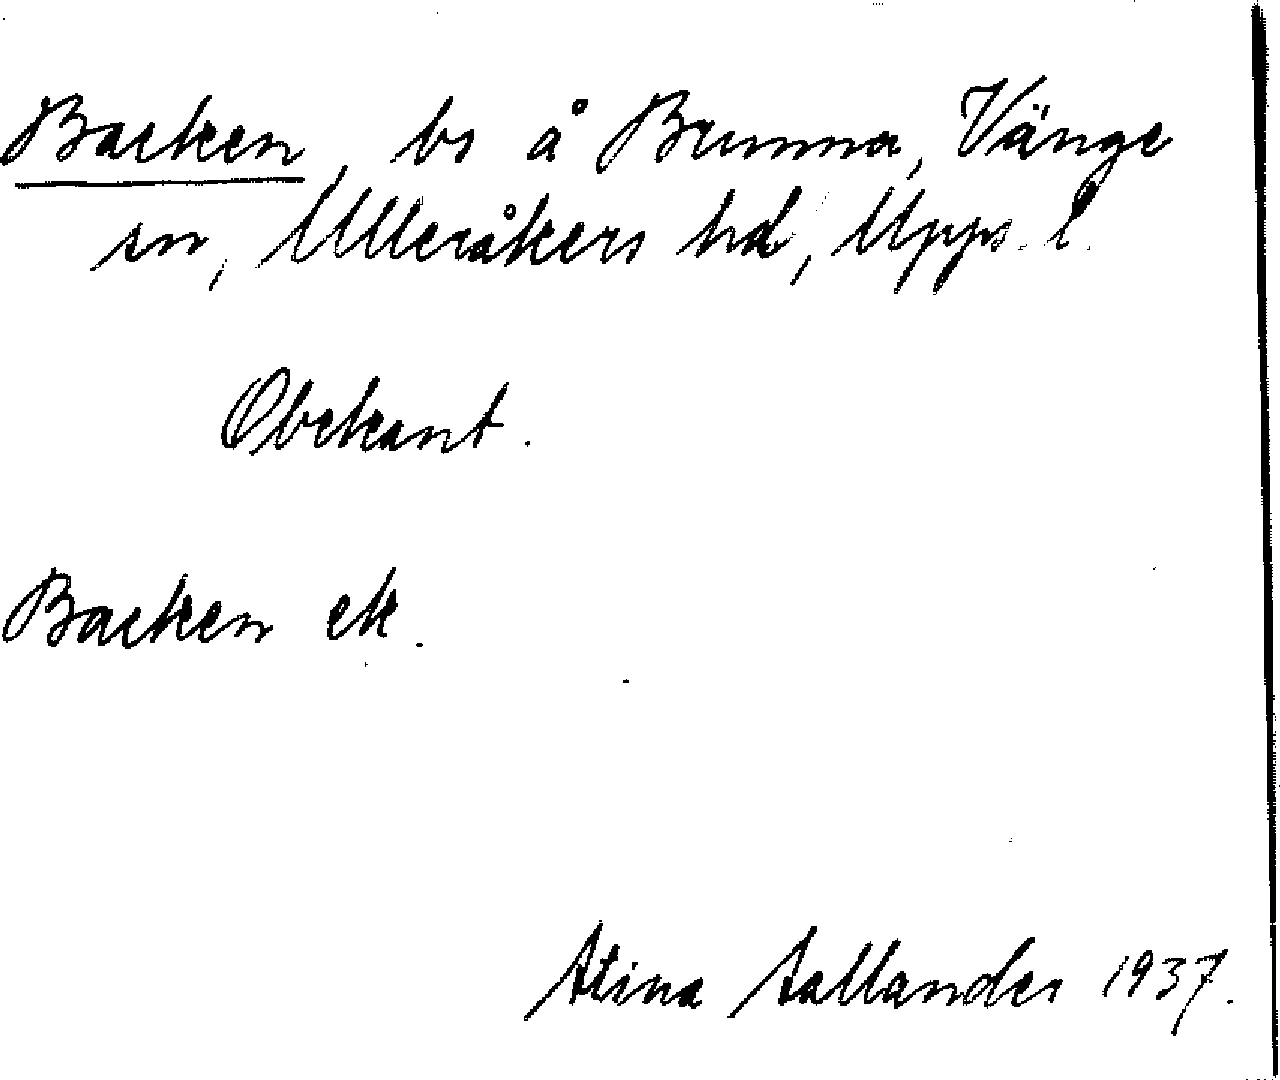 Backen, bs å Brunna, Vänge
sn, Ulleråkers hd, Upps. l.
Obekant.
Backen ek.
Stina Sallander 1937.